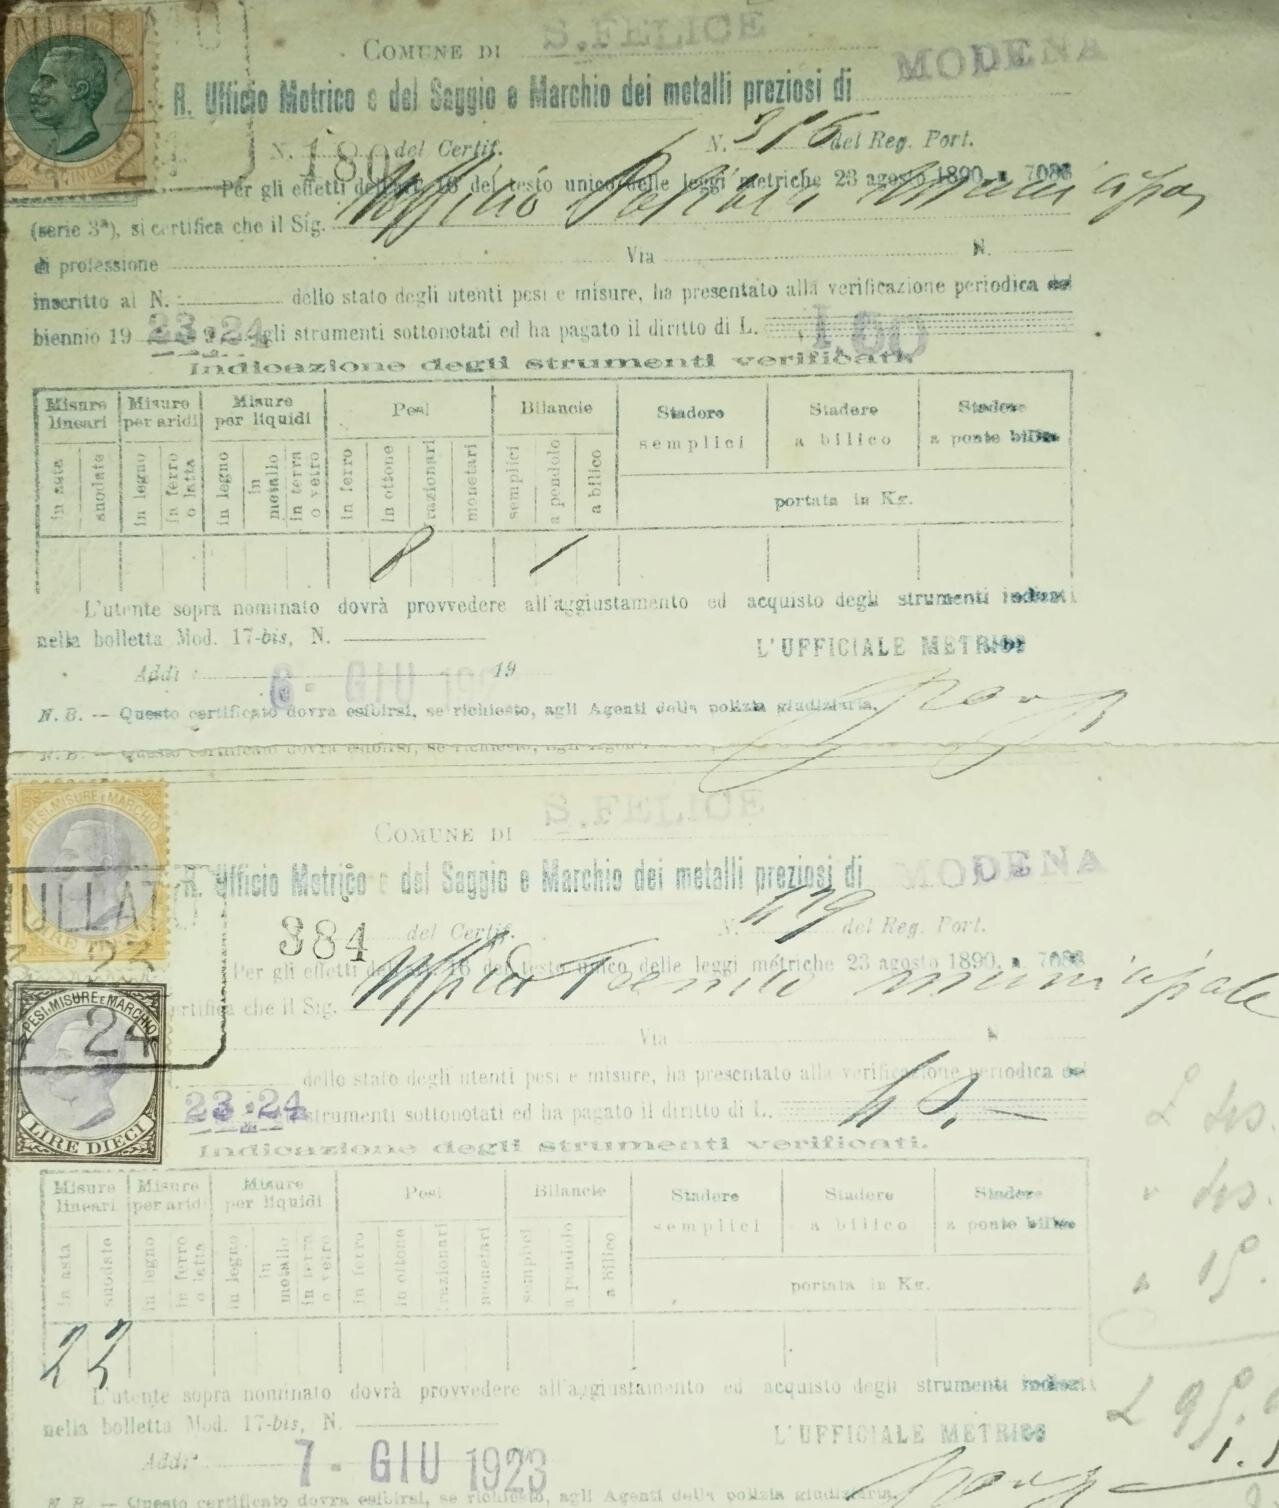 COMUNE DI S. FELICE
R. Ufficio Metrico e del Saggio e Marchio dei metalli preziosi di MODENA
N. 180 del Certif. N. 316 del Reg. Port.
Per gli effetti dell'art. 16 del testo unico delle leggi metriche 23 agosto 1890, n. 7088
(serie 3ª), si certifica che il Sig. Ufficio
di professione Via N.
inscritto al N. dello stato degli utenti pesi e misure, ha presentato alla verificazione periodica del
biennio 19 23-24 gli strumenti sottonotati ed ha pagato il diritto di L. 1.60
Indicazione degli strumenti verificati.
Misure lineari Misure per aridi Misure per liquidi Pesi Bilancie Stadere semplici Stadere a bilico Stadere a ponte bilico
in asta snodate in legno in ferro o latta in legno in metallo in terra o vetro in ferro in ottone razionari monetari semplici a pendolo a bilico portata in Kg.
8 1
L'utente sopra nominato dovrà provvedere all'aggiustamento ed acquisto degli strumenti indicati
nella bolletta Mod. 17-bis, N.
L'UFFICIALE METRICO
Addì 6 - GIU 192 19
N. B. — Questo certificato dovrà esibirsi, se richiesto, agli Agenti della polizia giudiziaria.
N. B. — Questo certificato dovrà esibirsi, se richiesto, agli Agenti
PESI, MISURE E MARCHIO
COMUNE DI S. FELICE
R. Ufficio Metrico e del Saggio e Marchio dei metalli preziosi di MODENA
384 del Certif. N. 419 del Reg. Port.
Per gli effetti dell'art. 16 del testo unico delle leggi metriche 23 agosto 1890, n. 7088
certifica che il Sig. Ufficio Tecnico municipale
PESI, MISURE E MARCHIO
24
Via N
dello stato degli utenti pesi e misure, ha presentato alla verificazione periodica del
23-24 strumenti sottonotati ed ha pagato il diritto di L.
LIRE DIECI
Indicazione degli strumenti verificati.
Misure lineari Misure per aridi Misure per liquidi Pesi Bilancie Stadere semplici Stadere a bilico Stadere a ponte bilico
in asta snodate in legno in ferro o latta in legno in metallo in terra o vetro in ferro in ottone razionari monetari semplici a pendolo a bilico portata in Kg.
22
L'utente sopra nominato dovrà provvedere all'aggiustamento ed acquisto degli strumenti indicati
nella bolletta Mod. 17-bis, N.
L'UFFICIALE METRICO
Addì 7 - GIU 1923
N. B. — Questo certificato dovrà esibirsi, se richiesto, agli Agenti della polizia giudiziaria.